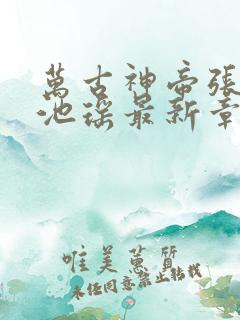 萬古神帝張
池瑤最新章
唯美蕙質
未经同意禁止转载